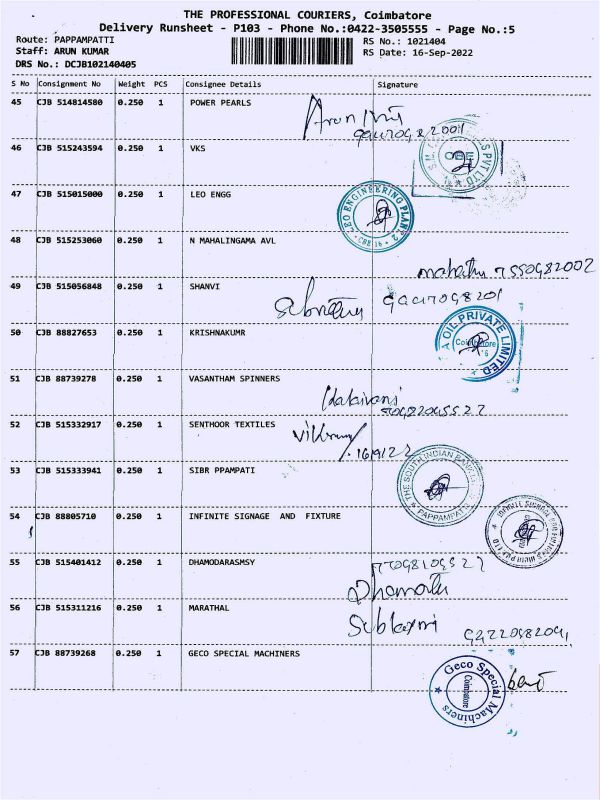 THE PROFESSIONAL COURIERS, Coimbatore
Delivery Runsheet - P103 - Phone No.:0422-3505555 - Page No.:5
Route: PAPPAMPATTI
RS No.: 1021404
Staff: ARUN KUMAR
RS Date: 16-Sep-2022
DRS No.: DCJB102140405
S No Consignment No Weight PCS Consignee Details Signature
45 CJB 514814580 0.250 1 POWER PEARLS
46 CJB 515243594 0.250 1 VKS
47 CJB 515015000 0.250 1 LEO ENGG
LEO ENGINEERING PLANT 2
CBE 16
48 CJB 515253060 0.250 1 N MAHALINGAMA AVL
49 CJB 515056848 0.250 1 SHANVI
50 CJB 88827653 0.250 1 KRISHNAKUMR
A OIL PRIVATE LIMITED
Coimbatore
51 CJB 88739278 0.250 1 VASANTHAM SPINNERS
52 CJB 515332917 0.250 1 SENTHOOR TEXTILES
16/9/22
53 CJB 515333941 0.250 1 SIBR PPAMPATI
THE SOUTH INDIAN BANK
PAPPAMPATTI
54 CJB 88805710 0.250 1 INFINITE SIGNAGE AND FIXTURE
55 CJB 515401412 0.250 1 DHAMODARASMSY
56 CJB 515311216 0.250 1 MARATHAL
57 CJB 88739268 0.250 1 GECO SPECIAL MACHINERS
Geco Special Machiners
Coimbatore